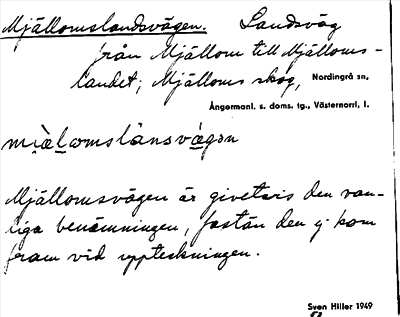 Mjällomslandsvägen. Landsväg
från Mjällom till Mjälloms-
landet; Mjälloms skog, Nordingrå sn,
Ångermanl. s. doms. tg., Västernorrl. l.
Mjällomsvägen är givetvis den van-
liga benämningen, fastän den ej kom
fram vid uppteckningen.
Sven Hiller 1949